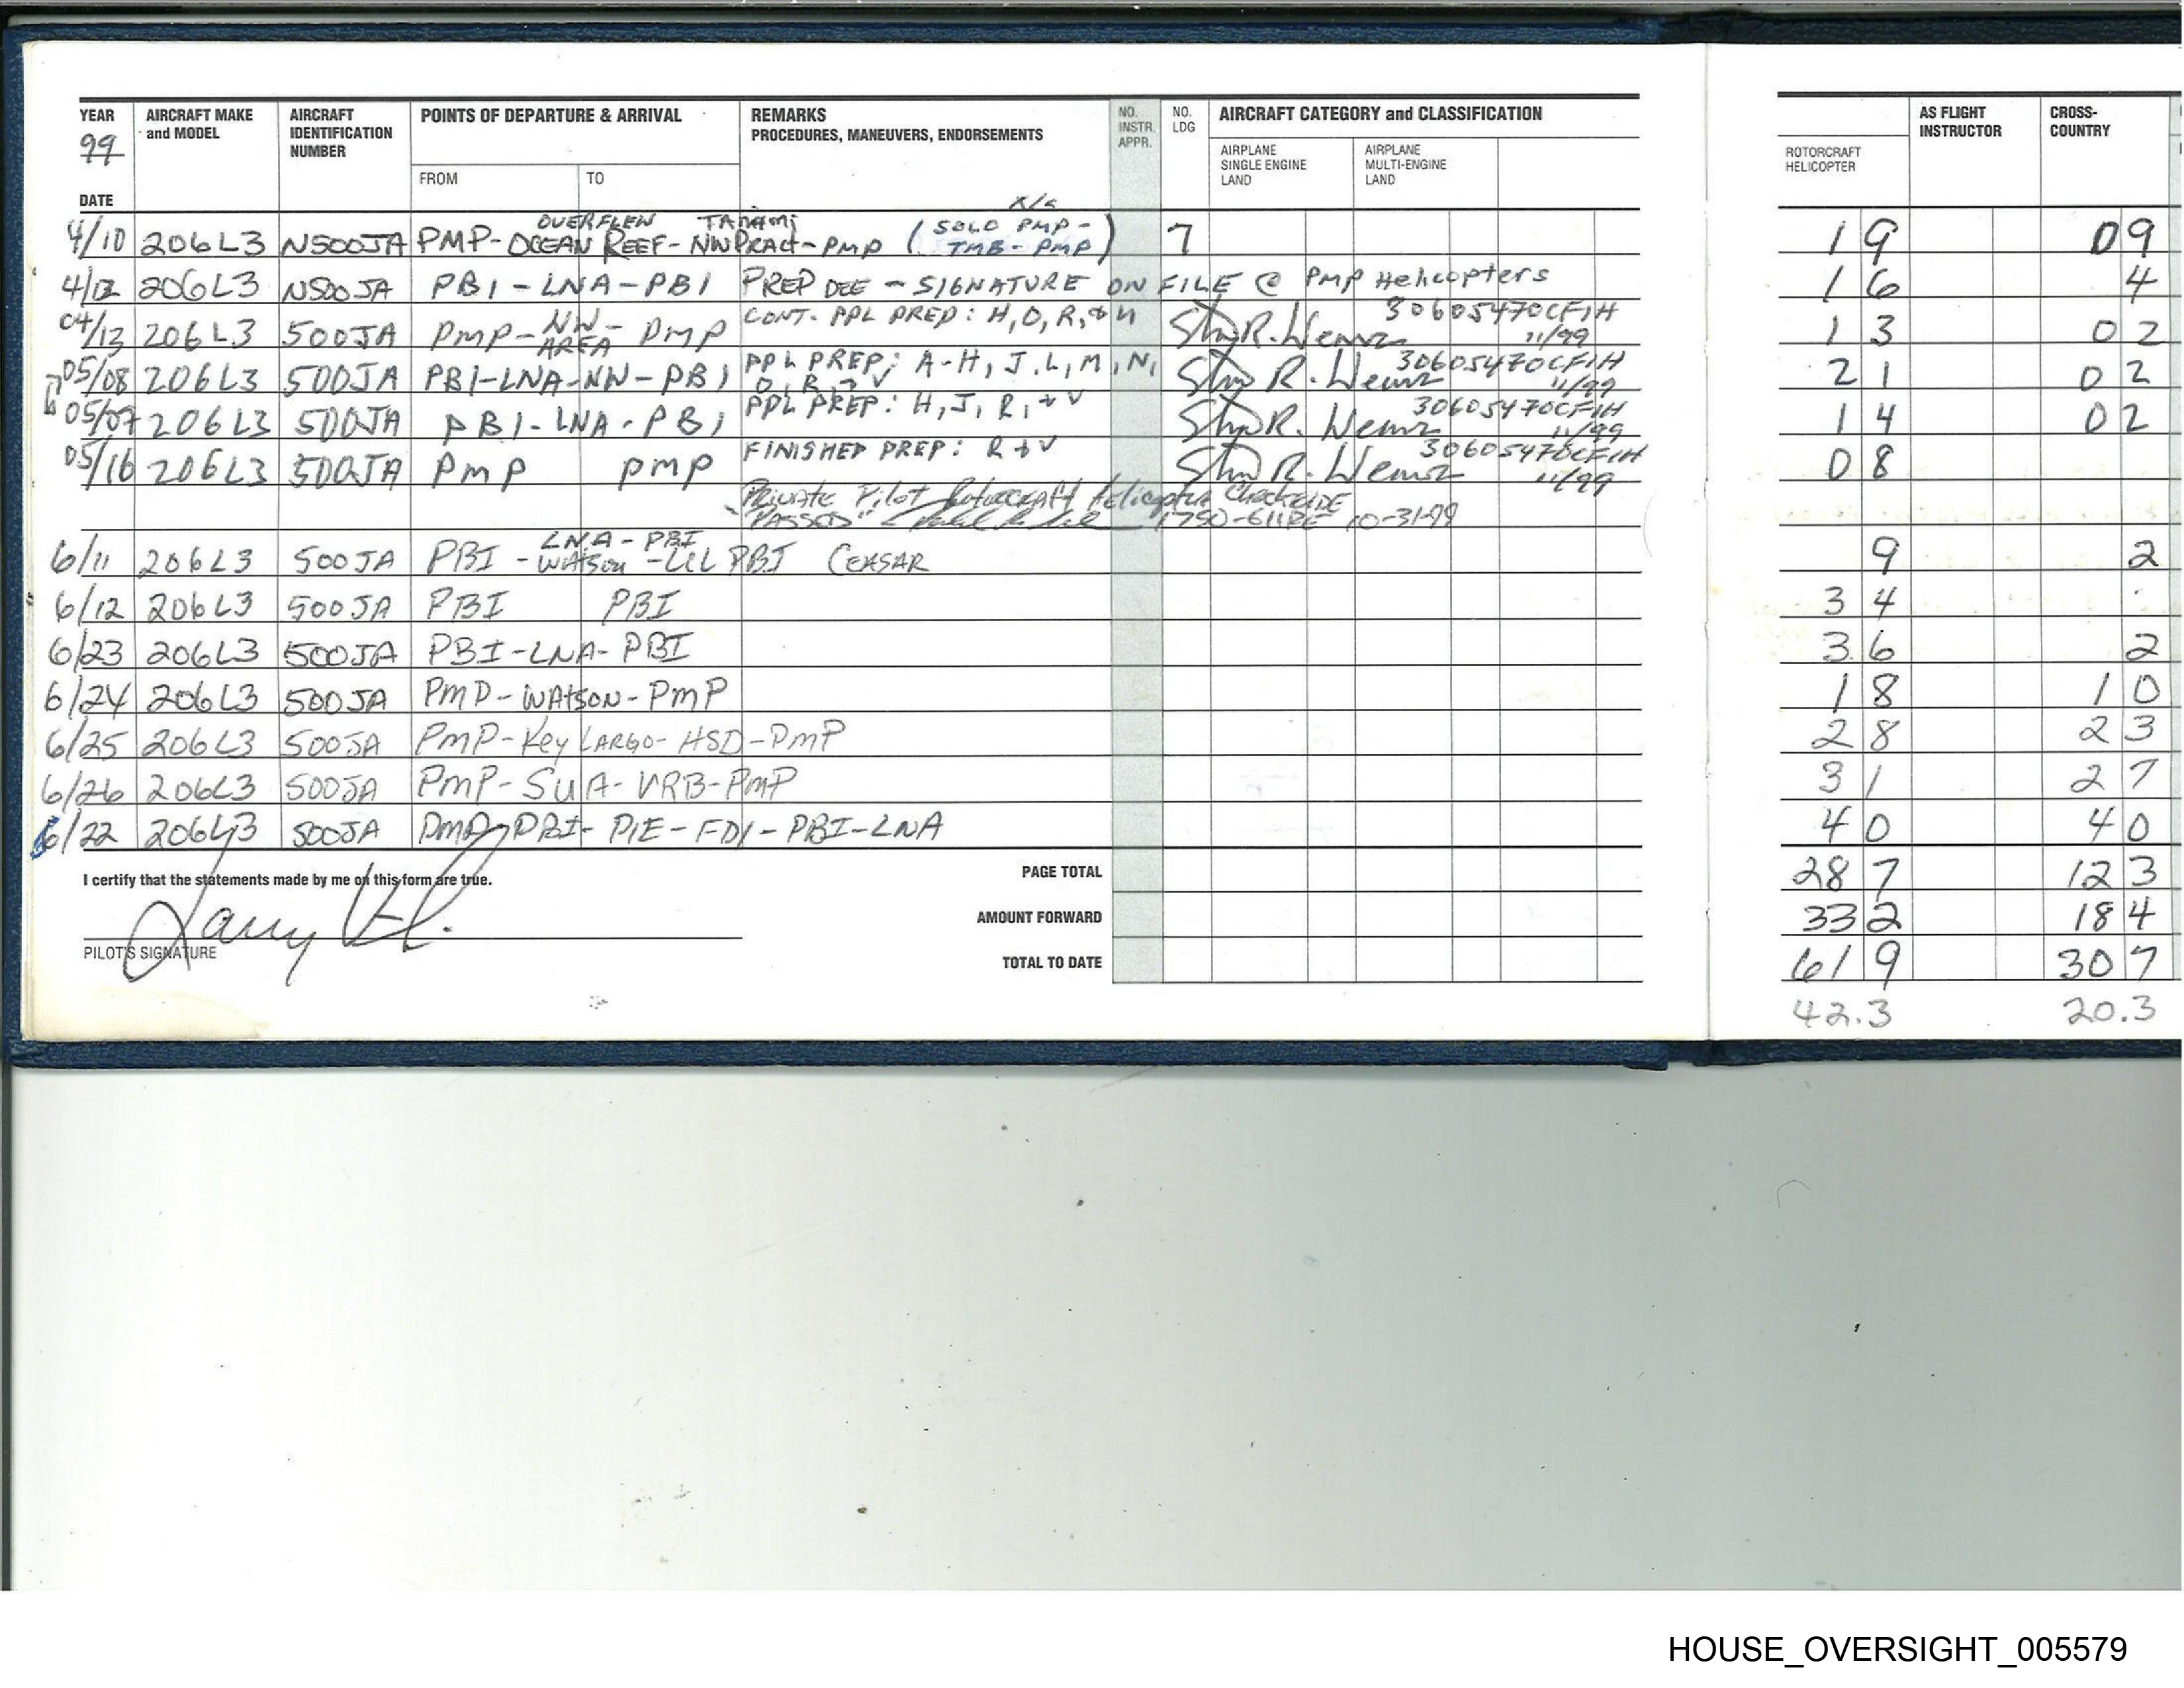 YEAR AIRCRAFT MAKE AIRCRAFT POINTS OF DEPARTURE & ARRIVAL REMARKS NO. NO. AIRCRAFT CATEGORY and CLASSIFICATION AS FLIGHT CROSS-
99 and MODEL IDENTIFICATION PROCEDURES, MANEUVERS, ENDORSEMENTS INSTR. LDG INSTRUCTOR COUNTRY
NUMBER APPR. AIRPLANE AIRPLANE ROTORCRAFT
SINGLE ENGINE MULTI-ENGINE HELICOPTER
DATE FROM TO LAND LAND
OVERFLEW TAMAMI X/C SOLO PMP-
4/10 206L3 N500JA PMP-OCEAN REEF-NW PRACT-PMP ( TMB-PMP) 7 1 9 0 9
4/12 206L3 N500JA PBI-LNA-PBI PREP DEE - SIGNATURE ON FILE @ PMP Helicopters 1 6 4
04/13 206L3 500JA PMP-NW AREA-PMP CONT. PPL PREP: H, O, R, + N 30605470CFIH 11/99 1 3 0 2
05/08 206L3 500JA PBI-LNA-NW-PBI PPL PREP: A-H, J, L, M, N, O, R, + V 30605470CFIH 11/99 2 1 0 2
05/07 206L3 500JA PBI-LNA-PBI PPL PREP: H, J, R, + V 30605470CFIH 11/99 1 4 0 2
05/16 206L3 500JA PMP PMP FINISHED PREP: R + V 30605470CFIH 11/99 0 8
Private Pilot Rotorcraft Helicopter Checkride
"PASSED" 10-31-99
LNA-PBI
6/11 206L3 500JA PBI -WATSON-LCL PBI CEASAR 9 2
6/12 206L3 500JA PBI PBI 3 4
6/23 206L3 500JA PBI-LNA-PBI 3 6 2
6/24 206L3 500JA PMP-WATSON-PMP 1 8 1 0
6/25 206L3 500JA PMP-Key LARGO-HSD-PMP 2 8 2 3
6/26 206L3 500JA PMP-SUA-VRB-PMP 3 1 2 7
6/22 206L3 500JA PMP-PBI-PIE-FDI-PBI-LNA 4 0 4 0
I certify that the statements made by me on this form are true. PAGE TOTAL 28 7 12 3
Larry AMOUNT FORWARD 33 2 18 4
PILOT'S SIGNATURE TOTAL TO DATE 61 9 30 7
42.3 20.3
HOUSE_OVERSIGHT_005579